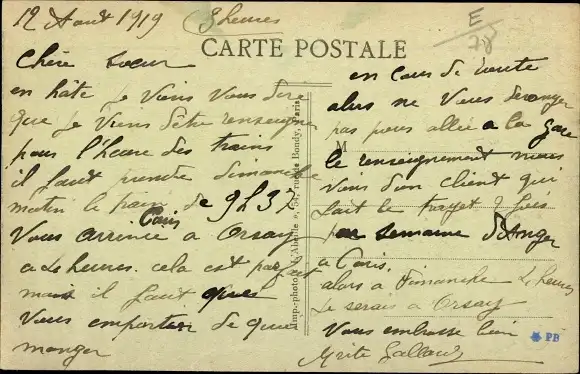 12 Aout 1919 3 heures
E
78
CARTE POSTALE
Chère Soeur
en hâte je viens vous dire
que je viens d'être renseigné
pour l'heure des trains
il faut prendre dimanche
matin le train de 9h37
Paris
vous arrivée a Orsay
a 4 heures. cela est parfait
mais il faut que
vous emportiez de quoi
manger
Imp.-photo "L'Abeille", rue de Bondy, Paris
en cours de route
alors ne vous déranger
pas pour aller a la gare
M
le renseignement nous
vient d'un client qui
fait le trajet 2 fois
par semaine d'Anger
a Paris.
alors a Dimanche 4 heures
je serais a Orsay
Vous embrasse bien
PB